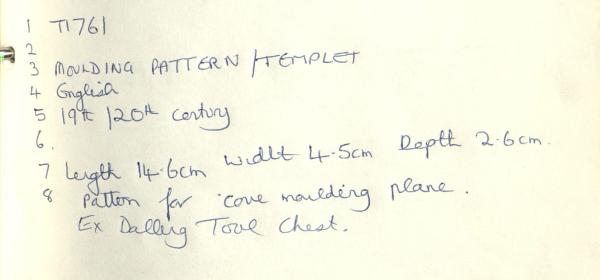 1 T1761
2
3 MOULDING PATTERN / TEMPLET
4 English
5 19th / 20th century
6.
7 Length 14.6cm Width 4.5cm Depth 2.6cm.
8 Pattern for cove moulding plane.
Ex Dalling Tool Chest.